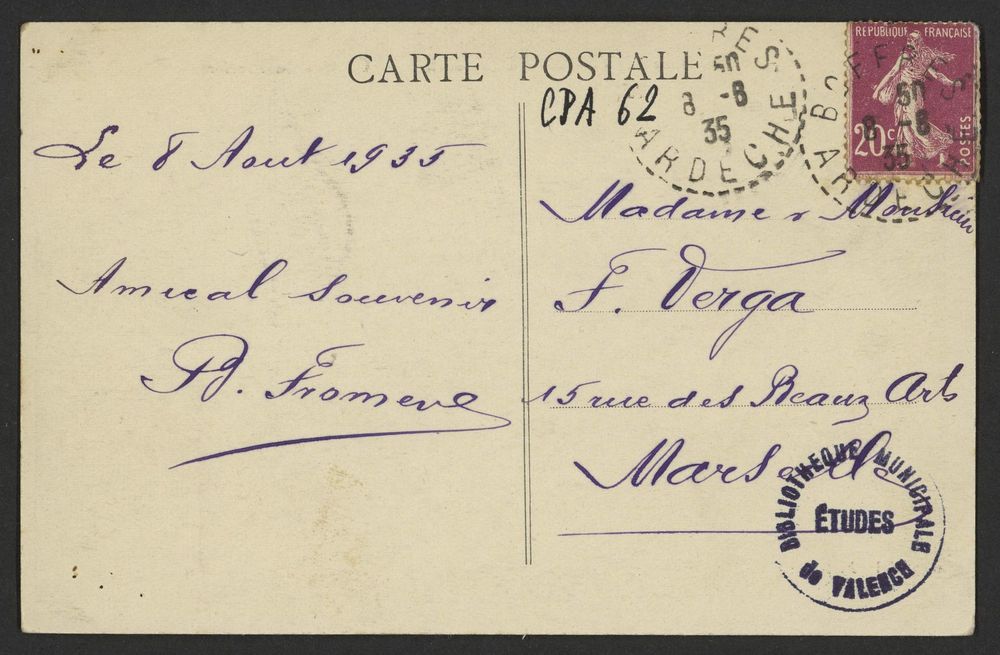 CARTE POSTALE
CPA 62
RES
8 -8
35
ARDECHE
REPUBLIQUE FRANÇAISE
20c
POSTES
8 -8
35
Le 8 Aout 1935
Amical Souvenir
Madame & Monsieur
F. Verga
15 rue des Beaux Arts
Marseille
BIBLIOTHEQUE MUNICIPALE
ÉTUDES
de VALENCE